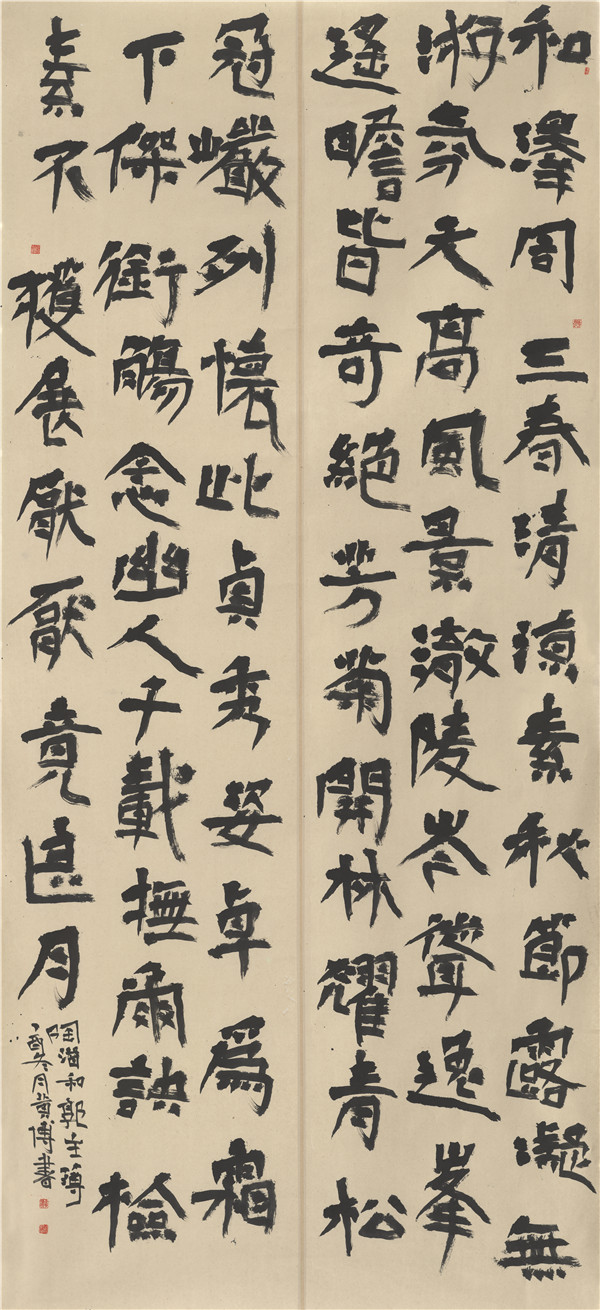 和澤周三春清涼素秋節露凝無
游氛天高風景澈陵岑聳逸峯
遙瞻皆奇絕芳菊開林耀青松
冠巖列懷此貞秀姿卓爲霜
下傑銜觴念幽人千載撫爾訣檢
素不獲展厭厭竟良月
陶潛和郭主簿
丁酉冬月傅書